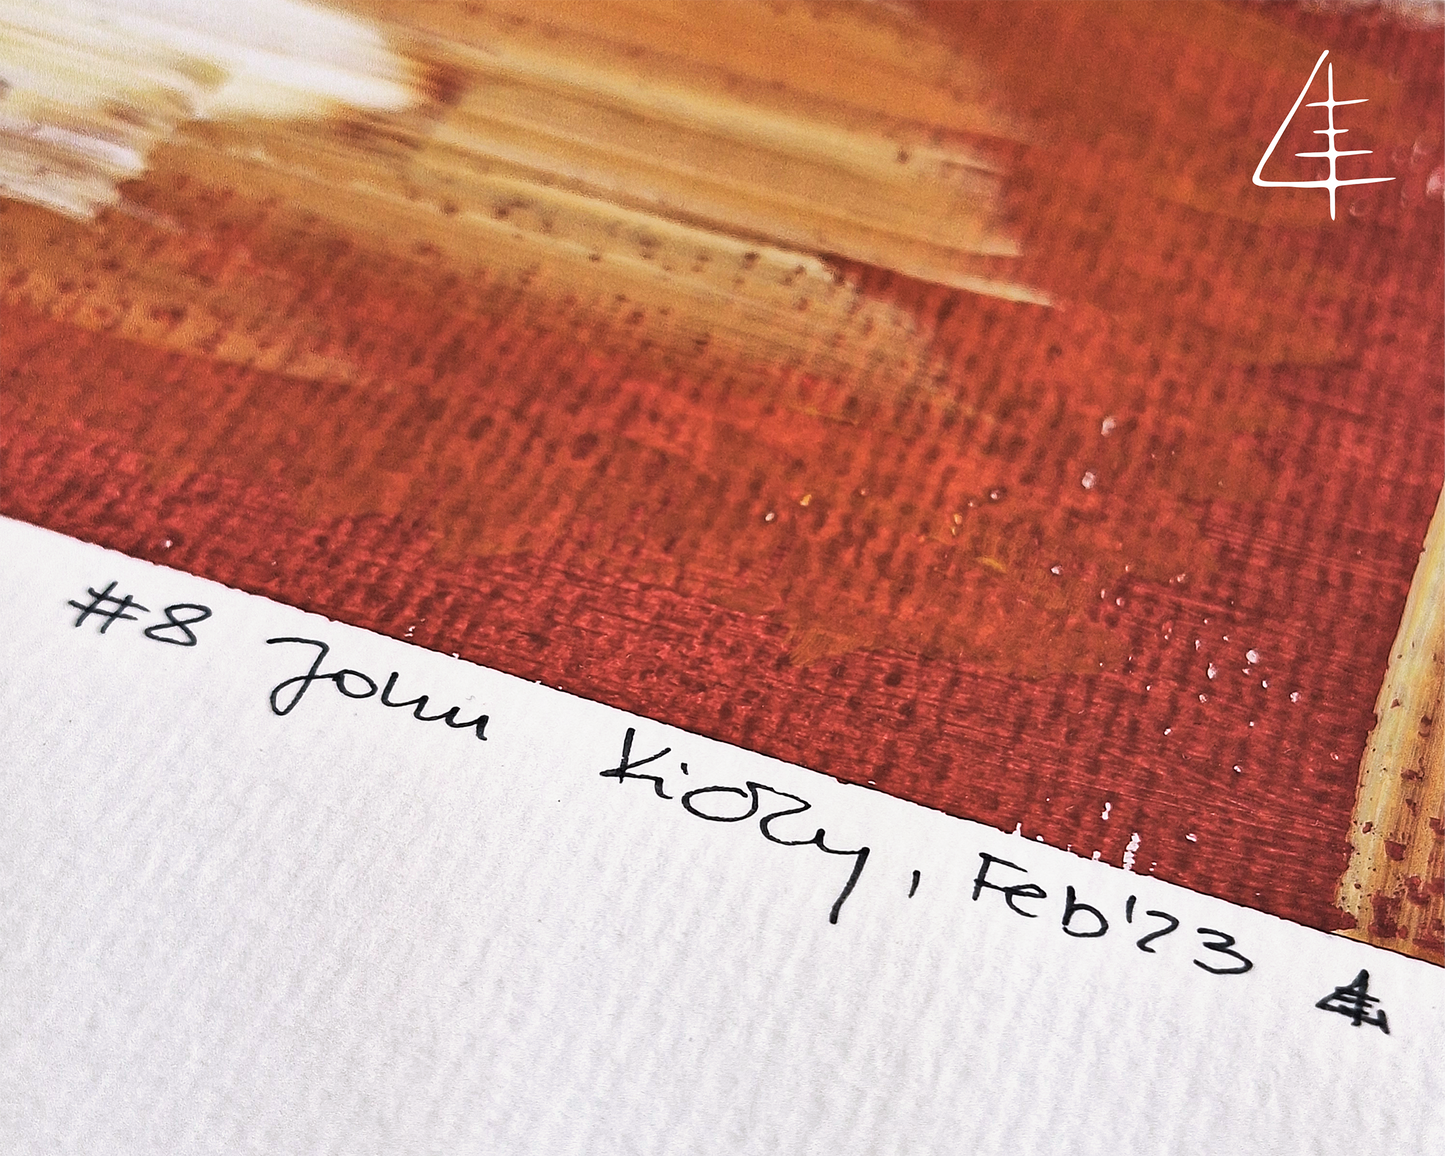 #8 John , Feb'23